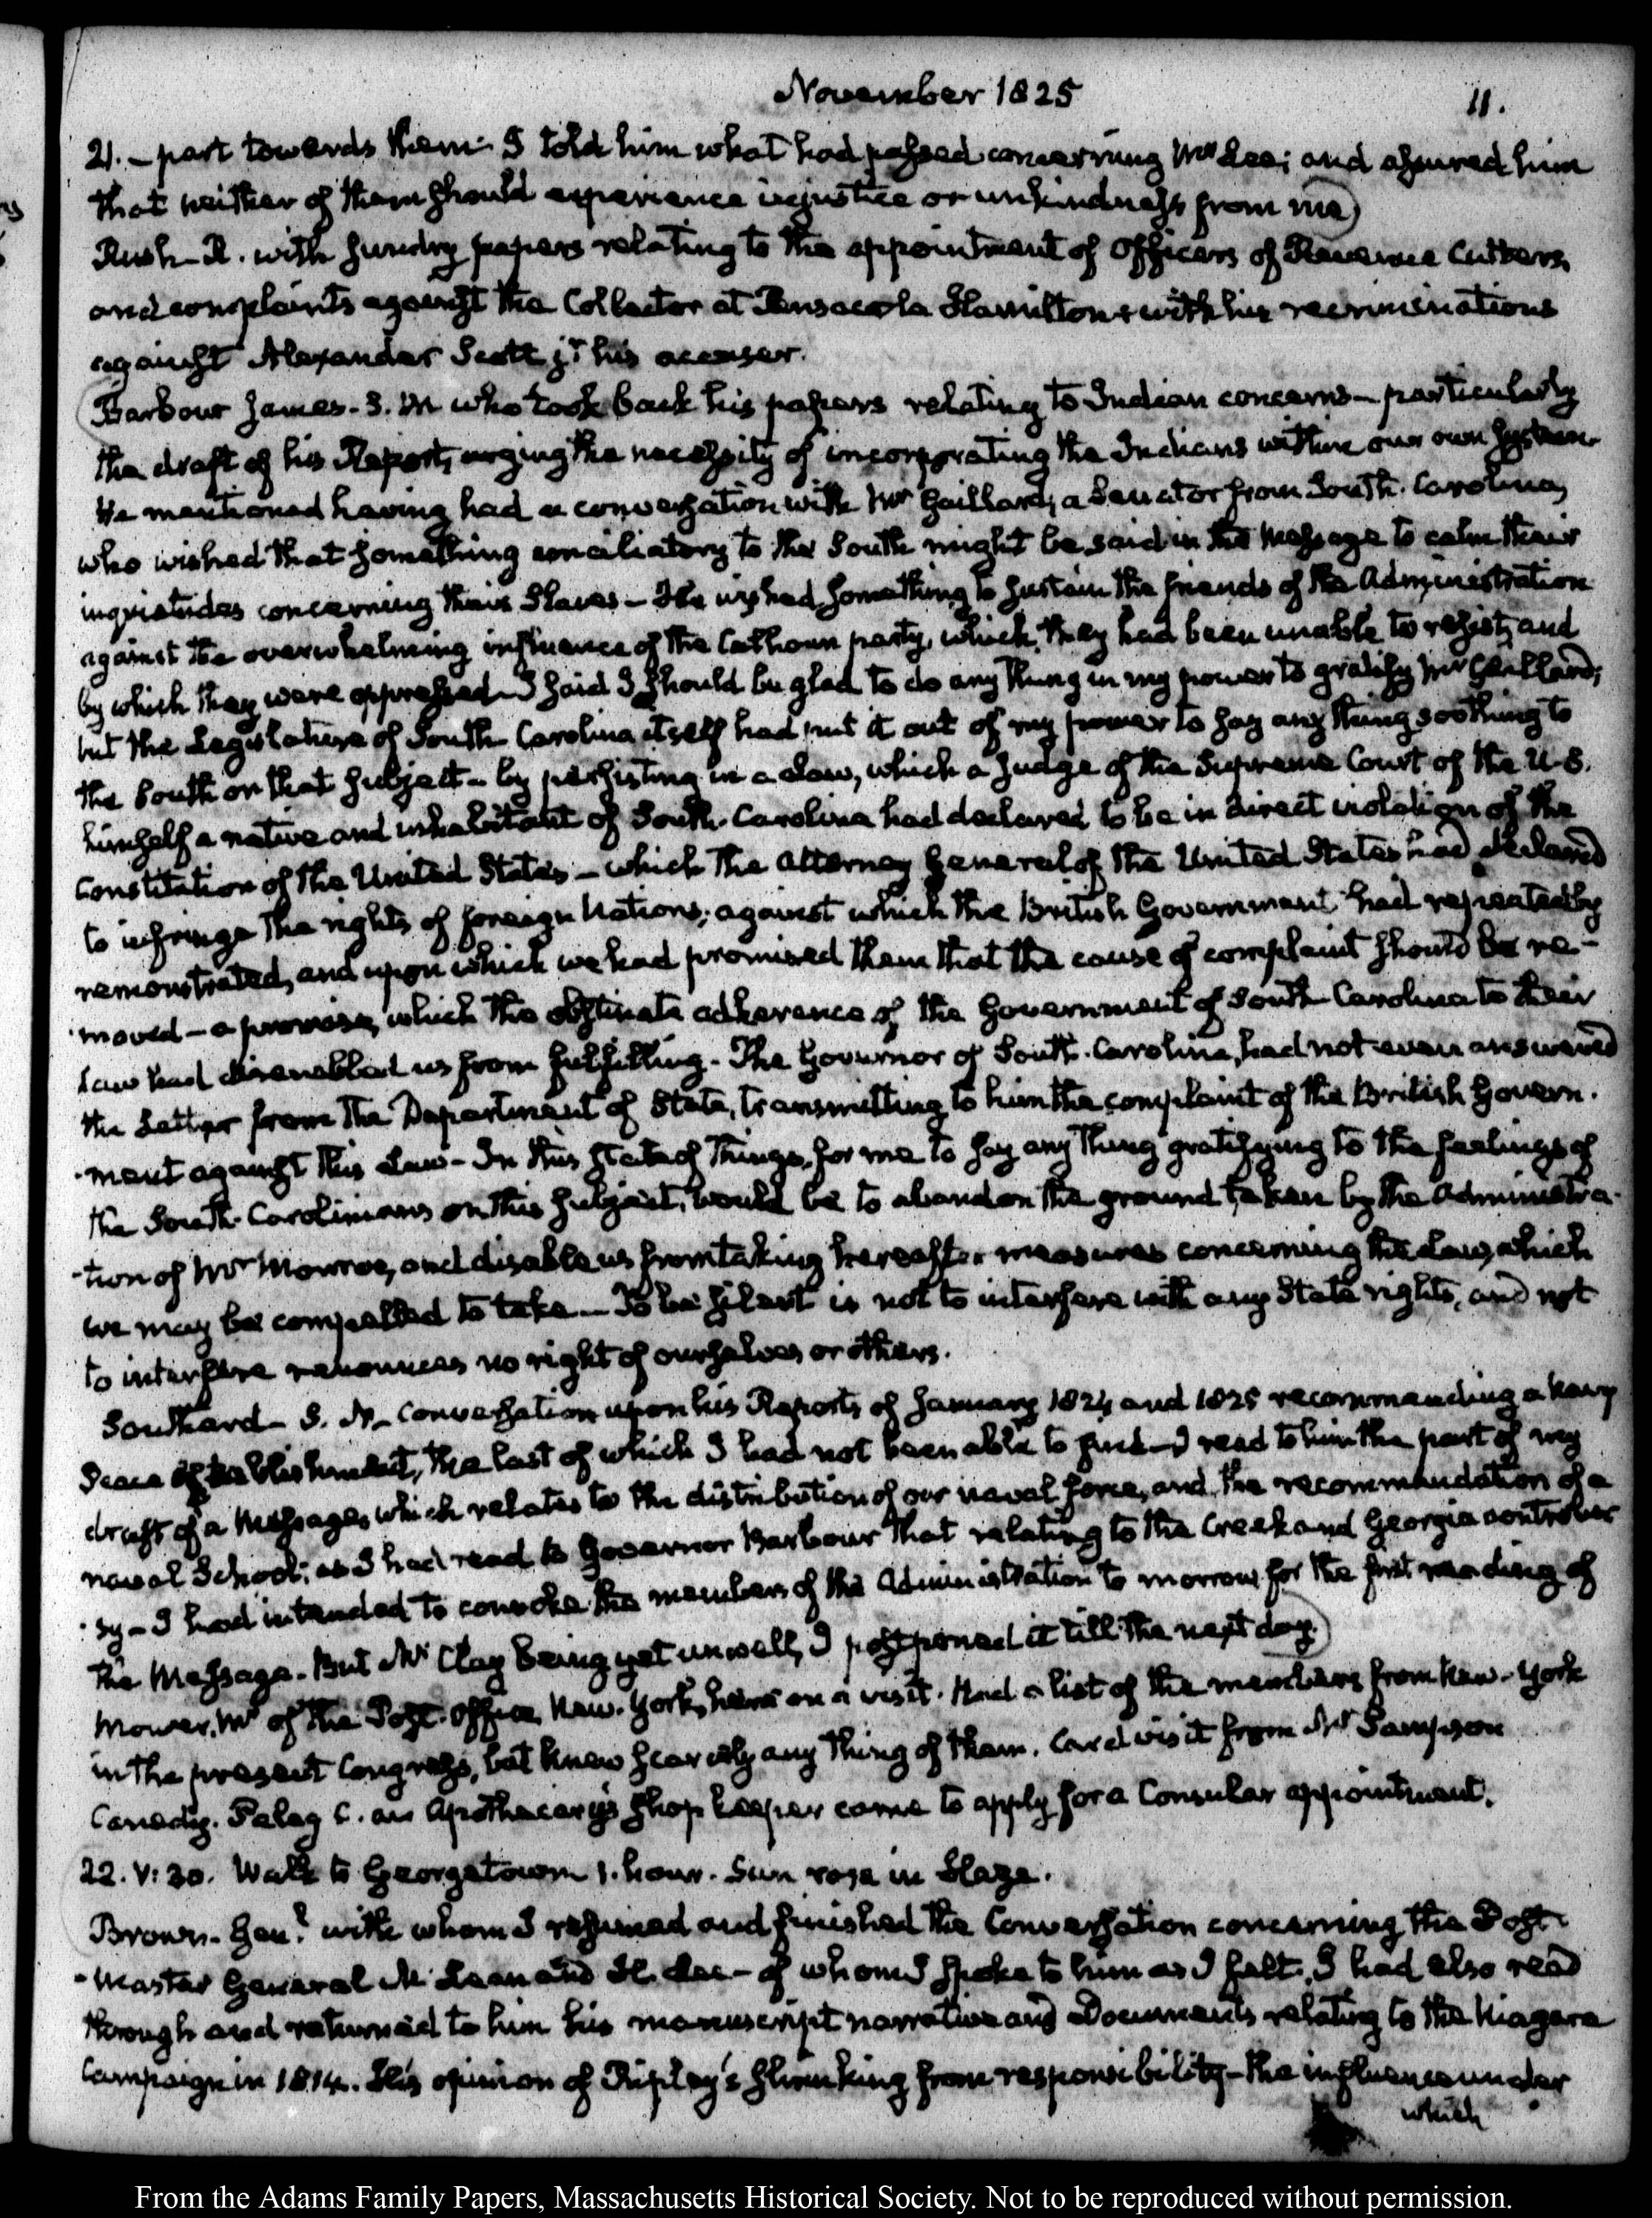 November 1825
11.
21. – part towards them. I told him what had passed concerning Mr Lee; and assured him
that neither of them should experience injustice or unkindness from me)
Rush – R. with sundry papers relating to the appointment of Officers of Revenue Cutters,
and complaints against the Collector at Pensacola Hamilton & with his recriminations
against Alexander Scott jr. his accuser.
Barbour James – S. W who took back his papers relating to Indian concerns – particularly
the draft of his Report, urging the necessity of incorporating the Indians within our own system.
He mentioned having had a conversation with Mr Gaillard, a Senator from South-Carolina,
who wished that something conciliatory to the South might be said in the Message to calm their
inquietudes concerning their Slaves – He wished something to sustain the friends of the Administration
against the overwhelming influence of the Calhoun party, which they had been unable to resist, and
by which they were oppressed – I said I should be glad to do any thing in my power to gratify Mr Gaillard;
but the Legislature of South Carolina itself had put it out of my power to say any thing soothing to
the South on that subject – by persisting in a Law, which a Judge of the Supreme Court of the U.S.
himself a native and inhabitant of South-Carolina had declared to be in direct violation of the
Constitution of the United States – which the Attorney General of the United States had declared
to infringe the rights of foreign Nations; against which the British Government had repeatedly
remonstrated, and upon which we had promised them that the cause of complaint should be re-
-moved – a promise, which the obstinate adherence of the Government of South Carolina to their
Law had disenabled us from fulfilling. The Governor of South-Carolina, had not even answered
the Letter from the Department of State, transmitting to him the complaint of the British Govern-
-ment against this Law – In this state of things, for me to say any thing gratifying to the feelings of
the South-Carolinians on this subject, would be to abandon the ground taken by the Administra-
-tion of Mr Monroe, and disable us from taking hereafter measures concerning the Law, which
we may be compelled to take – To be silent is not to interfere with any State rights, and not
to interfere renounces no right of ourselves or others.
Southard – S. N. – Conversation upon his Reports of January 1824 and 1825 recommending a Navy
Peace Establishment, the last of which I had not been able to find – I read to him the part of my
draft of a Message, which relates to the distribution of our naval force, and the recommendation of a
naval School; as I had read to Governor Barbour that relating to the Creek and Georgia controver-
-sy – I had intended to convoke the members of the Administration to morrow for the first reading of
the Message. But Mr Clay being yet unwell, I postponed it till the next day.)
Mower, Mr of the Post-Office New-York, here on a visit. Had a list of the members from New-York
in the present Congress, but knew scarcely any thing of them. Card visit from Mr Sampson
Canedy. Pelag C. an Apothecary's Shop keeper came to apply for a Consular appointment.
22. V:30. Walk to Georgetown 1. hour. Sun rose in blaze.
Brown – Genl. with whom I resumed and finished the Conversation concerning the Post-
-Master General Mc Lean and H. Lee – of whom I spoke to him as I felt. I had also read
through and returned to him his manuscript narrative and Documents relating to the Niagara
Campaign in 1814. His opinion of Ripley's shrinking from responsibility – the influence under
which
From the Adams Family Papers, Massachusetts Historical Society. Not to be reproduced without permission.